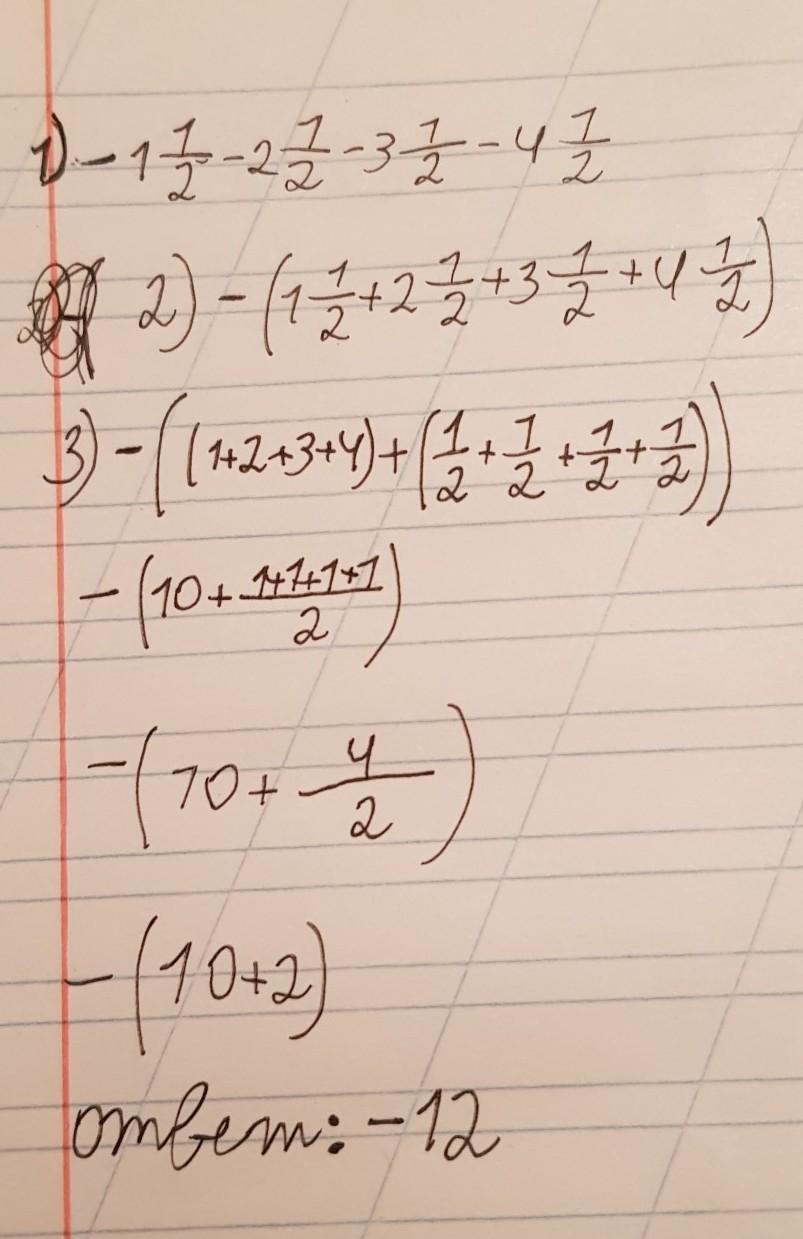 1) -1 1/2 - 2 1/2 - 3 1/2 - 4 1/2
2) -(1 1/2 + 2 1/2 + 3 1/2 + 4 1/2)
3) -((1+2+3+4)+(1/2 + 1/2 + 1/2 + 1/2))
-(10 + (1+1+1+1)/2)
-(10 + 4/2)
-(10+2)
ответ: -12